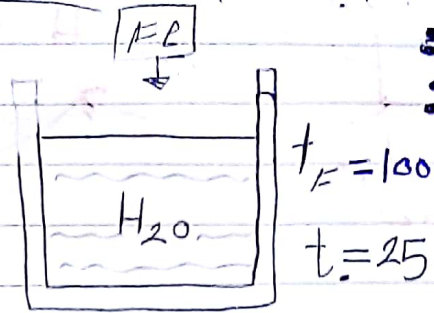 Fe
H₂O
t_F = 100
t. = 25